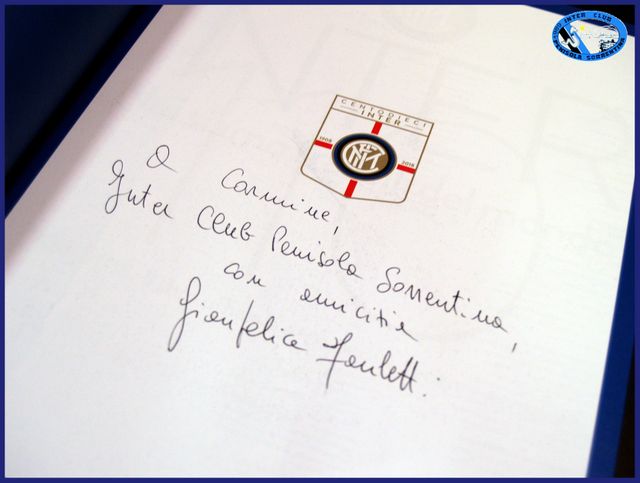 INTER CLUB
PENISOLA SORRENTINA
CENTODIECI
INTER
1908 2018
A Carmine,
Inter Club Penisola Sorrentina,
con amicizia
Gianfelice Facchetti